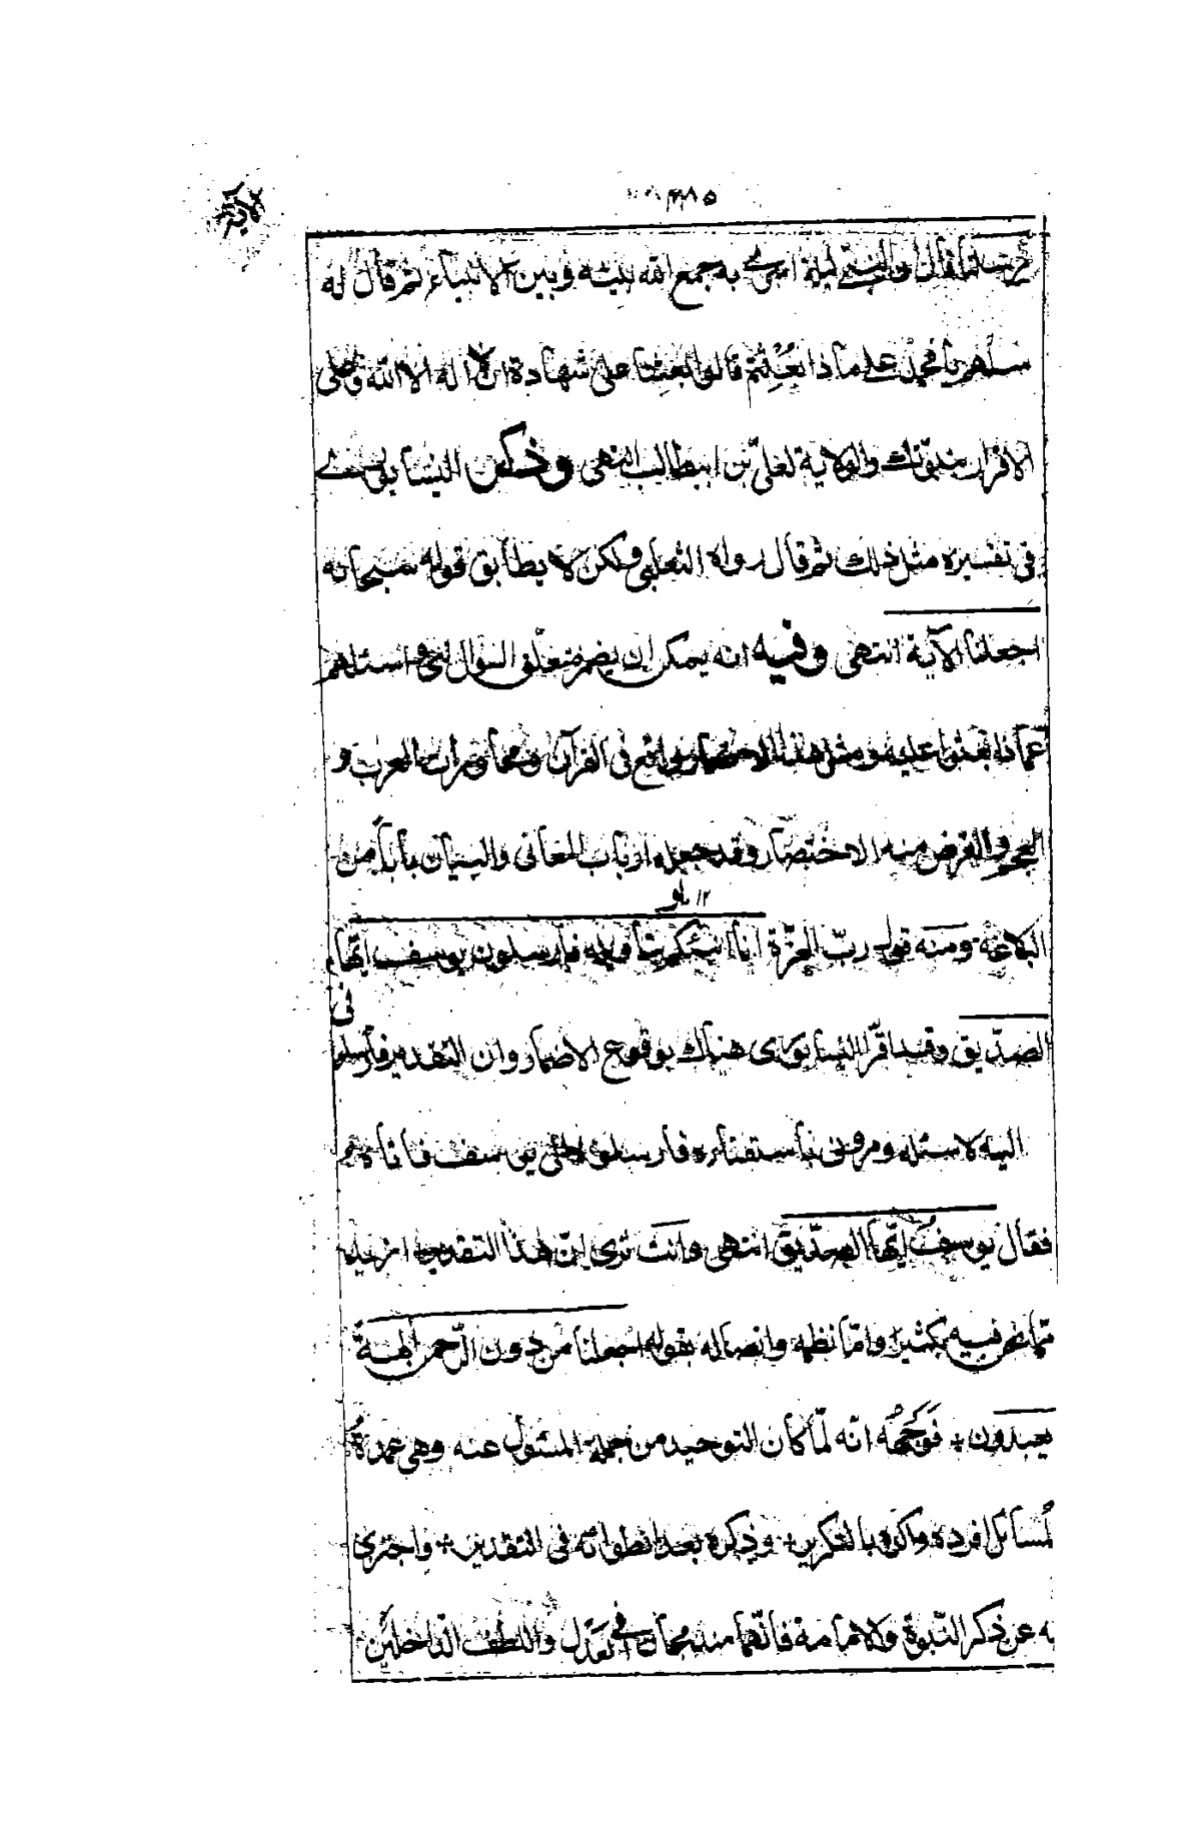 ٤٨٥
الآية
قال ان النبي ليلة اسري به جمع الله بينه وبين الانبياء ثم قال له
سلهم يا محمد على ماذا بعثتم قالوا بعثنا على شهادة ان لا اله الا الله وعلى
الاقرار بنبوتك والولاية لعلي بن ابيطالب انتهى وذكر النيسابوري
في تفسيره مثل ذلك ثم قال رواه الثعلبي ولكن لا يطابق قوله سبحانه
اجعلنا الآية انتهى وفيه انه يمكن ان يضمر متعلق السؤال اي واسئلهم
عماذا بعثوا عليه ومثل هذا الاضمار واقع في القرآن ومحاورات العرب و
العجم والغرض منه الاختصار وقد جعله ارباب المعاني والبيان باباً من
١٢ ياو
البلاغة ومنه قول ربّ العزّة انا انبئكم بتأويله فارسلون يوسف ايّها
الصدّيق وقد اقرّ النيسابوري هناك بوقوع الاضمار وان التقدير فأرسلو
ني
اليه لاسئله ومروني باستفتائه فارسلوه الى يوسف فاتاه ثم
فقال يوسف ايّها الصدّيق انتهى وانت ترى انّ هذا التقدير ازيد
ممّا نحن فيه بكثير وامّا نظمه واتصاله بقوله اجعلنا من دون الرّحمن الهة
يعبدون + فوجهه انّه لمّا كان التوحيد من جملة المسئول عنه وهي عمدة
لمسائل افرده واكّده بالتكرير + وذكره بعد انطوائه في التقدير + واجتزى
به عن ذكر النّبوّة والامامة فانّهما مندمجان في العدل واللطف الدّاخلين